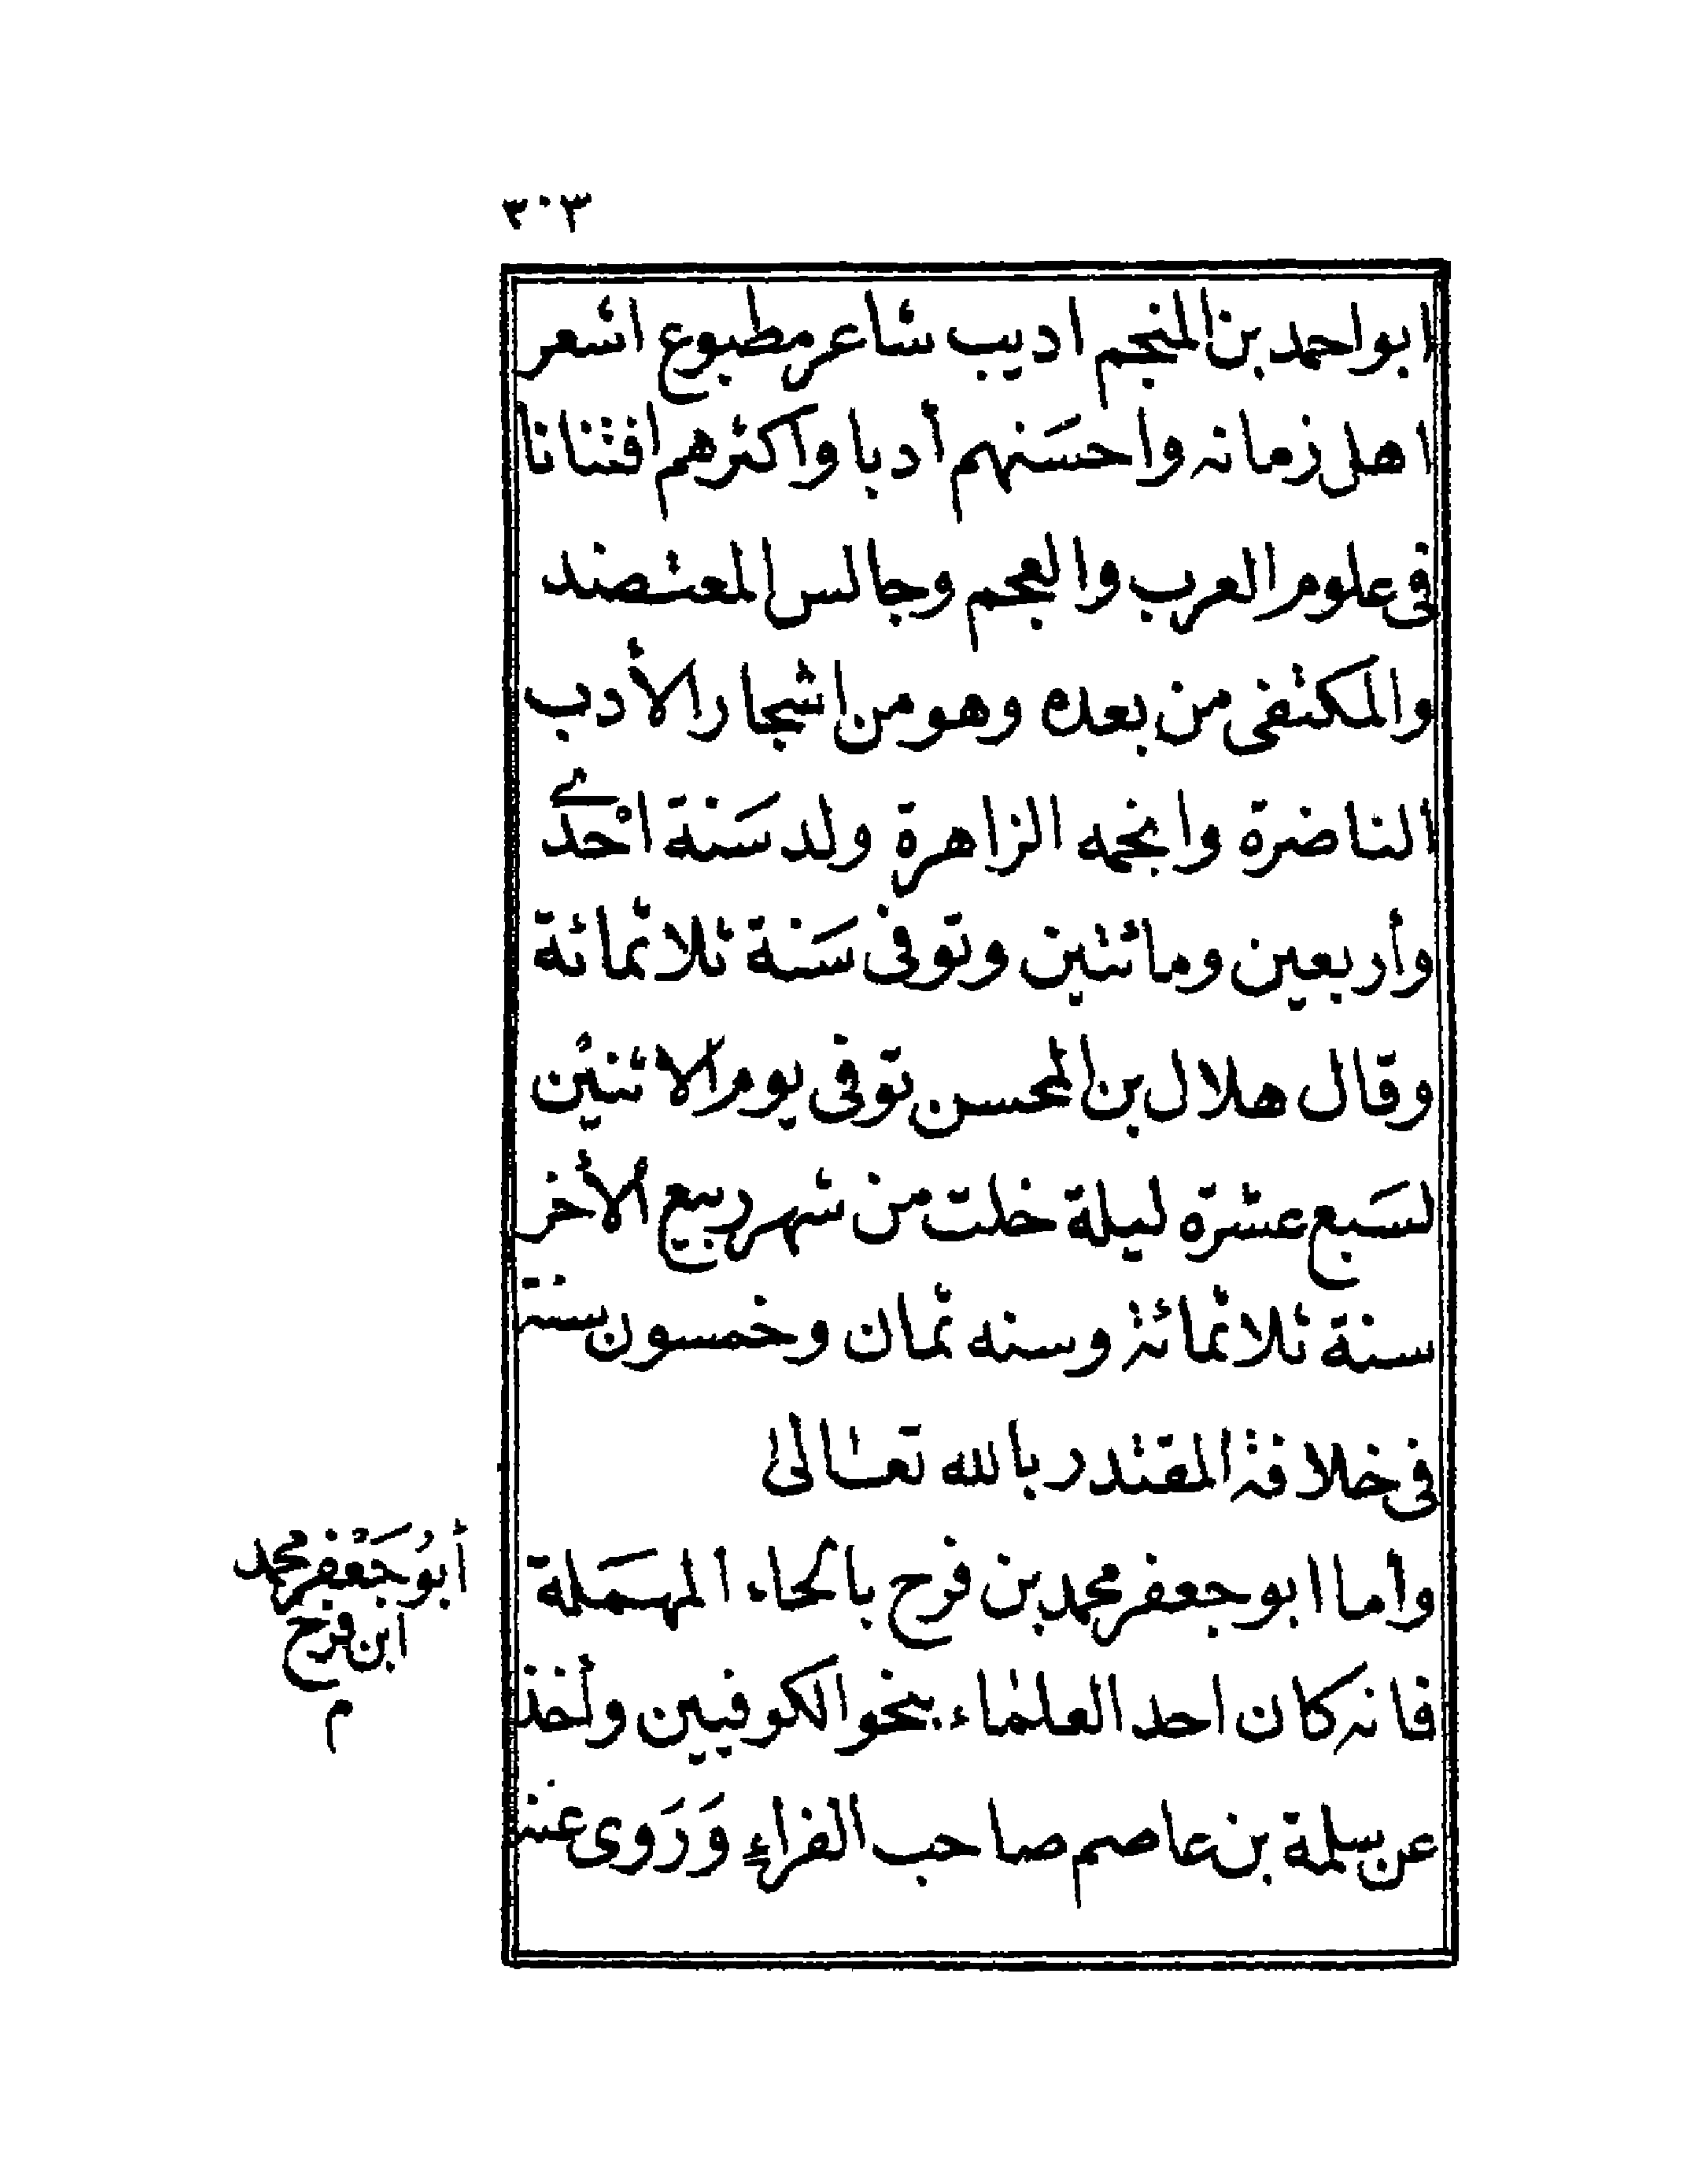 ٣٠٣
ابواحمد بن المنجم اديب شاعر مطبوع اشعر
اهل زمانه واحسَنهم أدبا واكثرهم افتنانا
فى علوم العرب والعجم وجالس المعتضد
والمكتفى من بعده وهو من اشجار الأدب
الناضرة وانجمه الزاهرة ولد سَنة احْدى
وأربعين ومائتين وتوفى سَنة ثلاثمائة
وقال هلال بن المحسن توفى يوم الاثنين
لسَبع عشرة ليلة خلت من شهر ربيع الأخر
سنة ثلاثمائة وسنه ثمان وخمسون سنة
فى خلافة المقتدر بالله تعالىٰ
وأما ابو جعفر محمد بن فرح بالحاء المهمَلة
فانه كان احد العلماء بنحو الكوفيين وأخذ
عن سلمة بن عاصم صاحب الفراءِ وَرَوى عنه
أبُو جَعْفر محمد
ابن فرح
م